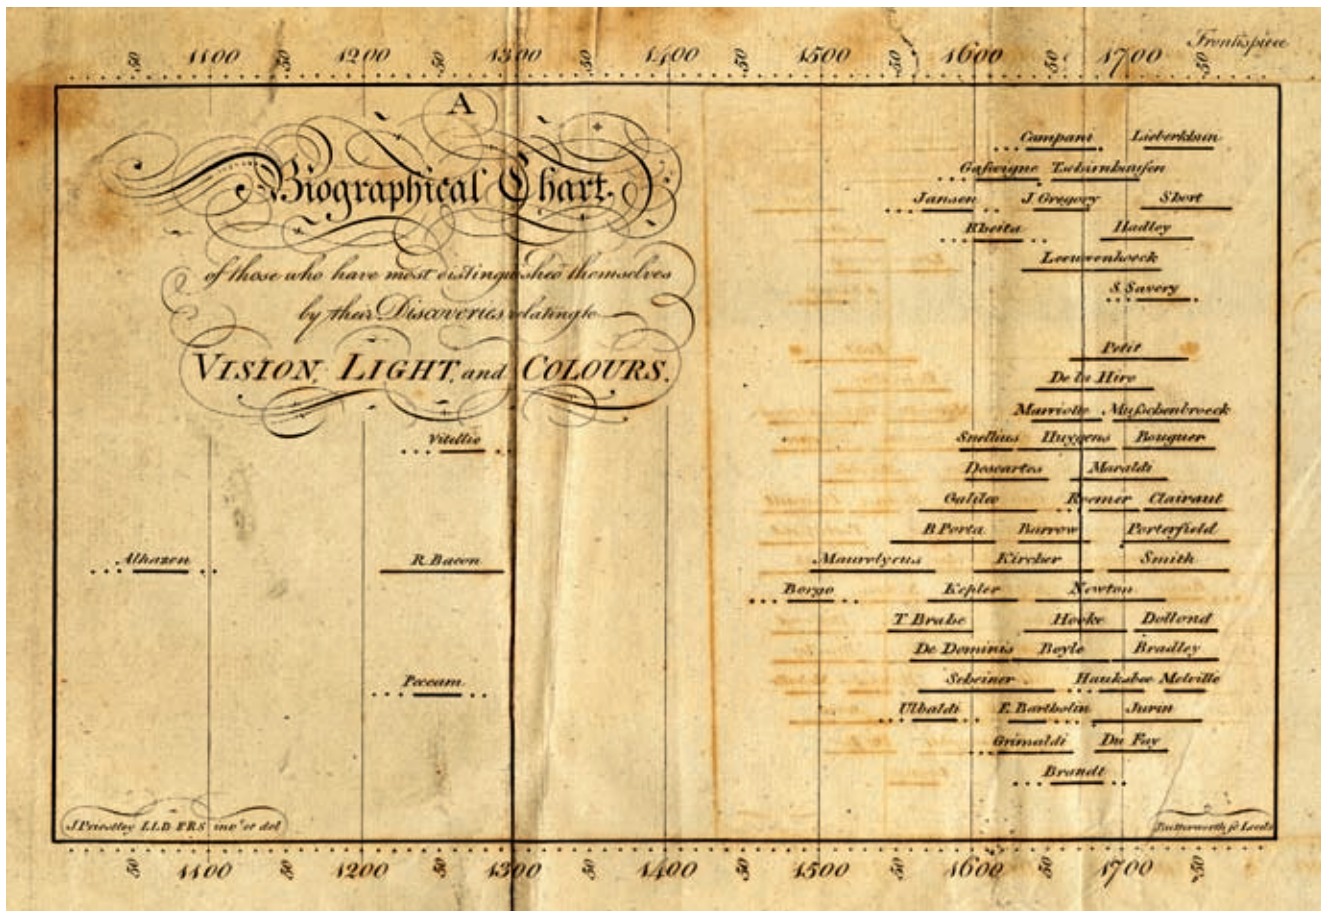 Frontispiece
50 1100 50 1200 50 1300 50 1400 50 1500 50 1600 50 1700 50
A
Biographical Chart.
of those who have most distinguished themselves
by their Discoveries relating to
VISION, LIGHT, and COLOURS.
Campani Lieberkhun
Gascoigne Tschirnhausen
Jansen J. Gregory Short
Rheita Hadley
Leeuwenhoeck
S. Savery
Petit
De la Hire
Marriotte Musschenbroeck
Vitellio Snellius Huygens Bouguer
Descartes Maraldi
Galileo Roemer Clairaut
B. Porta Barrow Porterfield
Alhazen R. Bacon Maurolycus Kircher Smith
Borgo Kepler Newton
T. Brahe Hooke Dollond
De Dominis Boyle Bradley
Peccam Scheiner Hauksbee Melville
Ulbaldi E. Bartholin Jurin
Grimaldi Du Fay
Brandt
J. Priestley LLD FRS invt. et del
Butterworth sc Leeds
50 1100 50 1200 50 1300 50 1400 50 1500 50 1600 50 1700 50